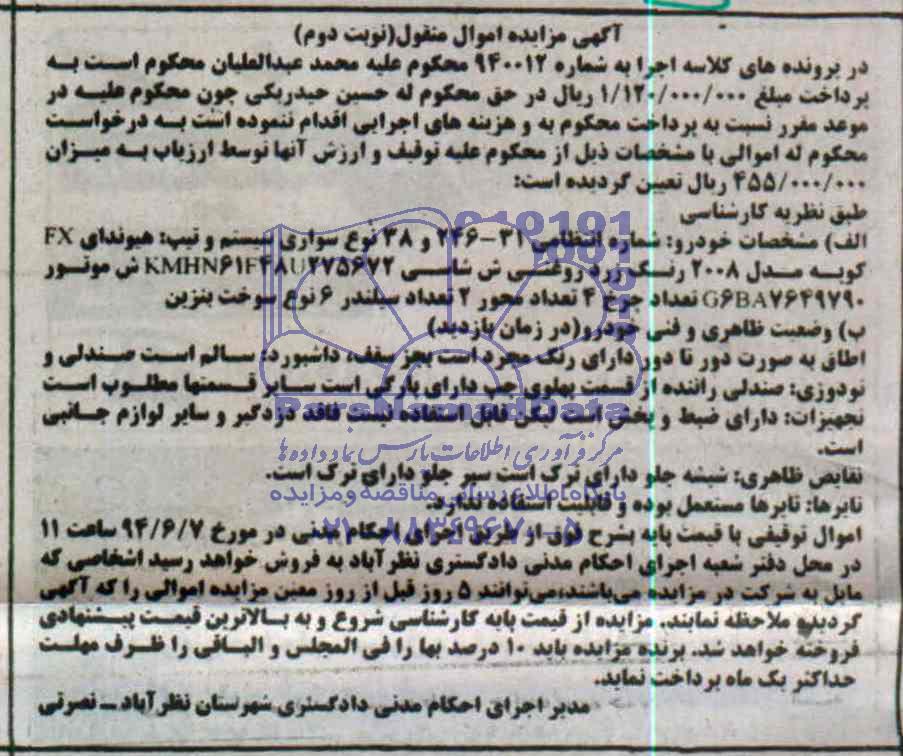 آگهی مزایده اموال منقول(نوبت دوم)
در پرونده های کلاسه اجرا به شماره ۹۴۰۰۱۲ محکوم علیه محمد عبدالعلیان محکوم است به
پرداخت مبلغ ۱/۱۲۰/۰۰۰/۰۰۰ ریال در حق محکوم له حسین حیدربکی چون محکوم علیه در
موعد مقرر نسبت به پرداخت محکوم به و هزینه های اجرایی اقدام ننموده است به درخواست
محکوم له اموالی با مشخصات ذیل از محکوم علیه توقیف و ارزش آنها توسط ارزیاب به میزان
۴۵۵/۰۰۰/۰۰۰ ریال تعیین گردیده است:
طبق نظریه کارشناسی
الف) مشخصات خودرو: شماره انتظامی ۳۱-۲۴۶ و ۳۸ نوع سواری سیستم و تیپ: هیوندای FX
کوپه مدل ۲۰۰۸ رنگ زرد روغنی ش شاسی KMHN۶۱F۴۸U۲۷۵۶۷۲ ش موتور
G۶BA۷۶۴۹۷۹۰ تعداد چرخ ۴ تعداد محور ۲ تعداد سیلندر ۶ نوع سوخت بنزین
ب) وضعیت ظاهری و فنی خودرو(در زمان بازدید)
اطاق به صورت دور تا دور دارای رنگ مجرد است بجز سقف، داشبورد: سالم است صندلی و
تودوزی: صندلی راننده از قسمت پهلوی چپ دارای پارگی است سایر قسمتها مطلوب است
تجهیزات: دارای ضبط و پخش است لیکن قابل استفاده نیست فاقد دزدگیر و سایر لوازم جانبی
است.
نقایص ظاهری: شیشه جلو دارای ترک است سپر جلو دارای ترک است.
تایرها: تایرها مستعمل بوده و قابلیت استفاده ندارد.
اموال توقیفی با قیمت پایه بشرح فوق از طریق اجرای احکام مدنی در مورخ ۹۴/۶/۷ ساعت ۱۱
در محل دفتر شعبه اجرای احکام مدنی دادگستری نظرآباد به فروش خواهد رسید اشخاصی که
مایل به شرکت در مزایده می‌باشند،می‌توانند ۵ روز قبل از روز معین مزایده اموالی را که آگهی
گردیده ملاحظه نمایند. مزایده از قیمت پایه کارشناسی شروع و به بالاترین قیمت پیشنهادی
فروخته خواهد شد. برنده مزایده باید ۱۰ درصد بها را فی المجلس و الباقی را ظرف مهلت
حداکثر یک ماه پرداخت نماید.
مدیر اجرای احکام مدنی دادگستری شهرستان نظرآباد ـ نصرتی
ParsNamadData
مرکز فرآوری اطلاعات پارس نماد داده ها
پایگاه اطلاع رسانی مناقصه و مزایده